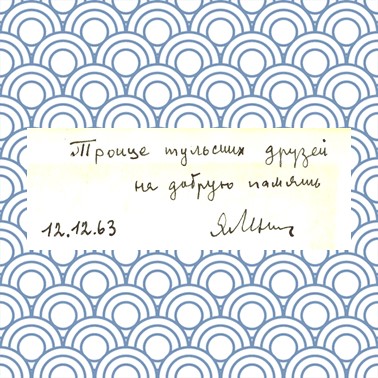 Тройце тульских друзей
на добрую память
12.12.63